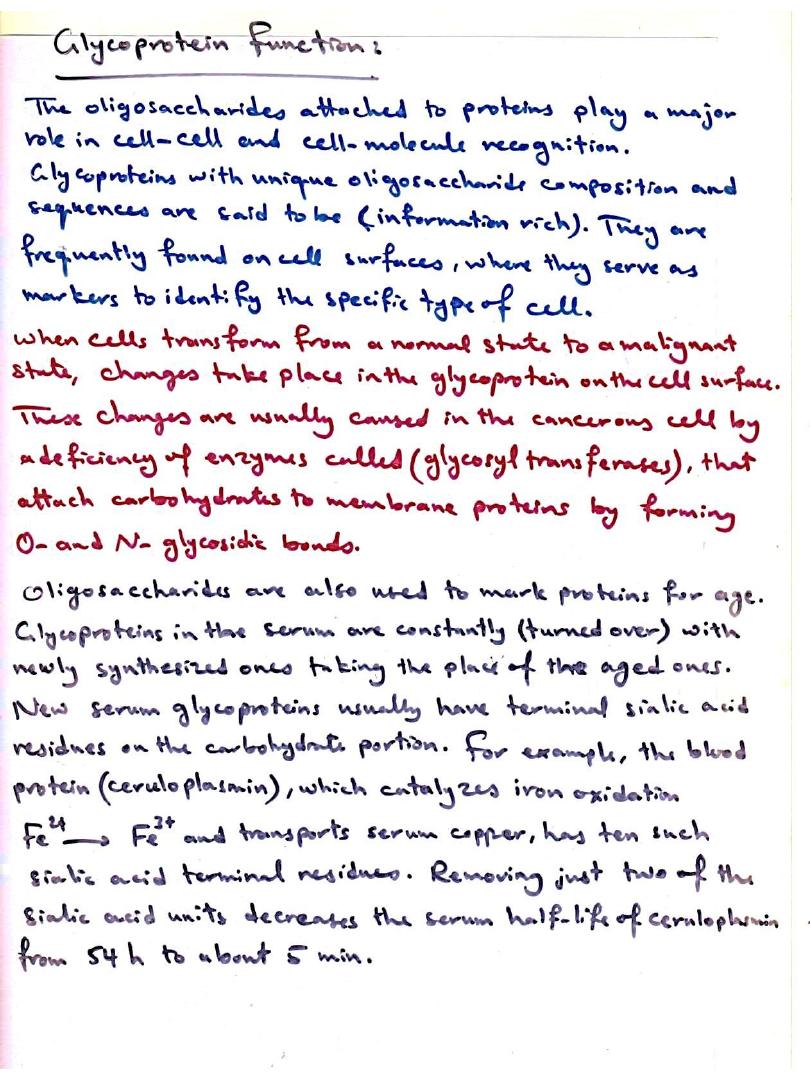 Glycoprotein function:
The oligosaccharides attached to proteins play a major
role in cell-cell and cell-molecule recognition.
Glycoproteins with unique oligosaccharide composition and
sequences are said to be (information rich). They are
frequently found on cell surfaces, where they serve as
markers to identify the specific type of cell.
When cells transform from a normal state to a malignant
state, changes take place in the glycoprotein on the cell surface.
These changes are usually caused in the cancerous cell by
a deficiency of enzymes called (glycosyl transferases), that
attach carbohydrates to membrane proteins by forming
O- and N- glycosidic bonds.
Oligosaccharides are also used to mark proteins for age.
Glycoproteins in the serum are constantly (turned over) with
newly synthesized ones taking the place of the aged ones.
New serum glycoproteins usually have terminal sialic acid
residues on the carbohydrate portion. For example, the blood
protein (ceruloplasmin), which catalyzes iron oxidation
Fe²⁺ → Fe³⁺ and transports serum copper, has ten such
sialic acid terminal residues. Removing just two of the
sialic acid units decreases the serum half-life of ceruloplasmin
from 54 h to about 5 min.